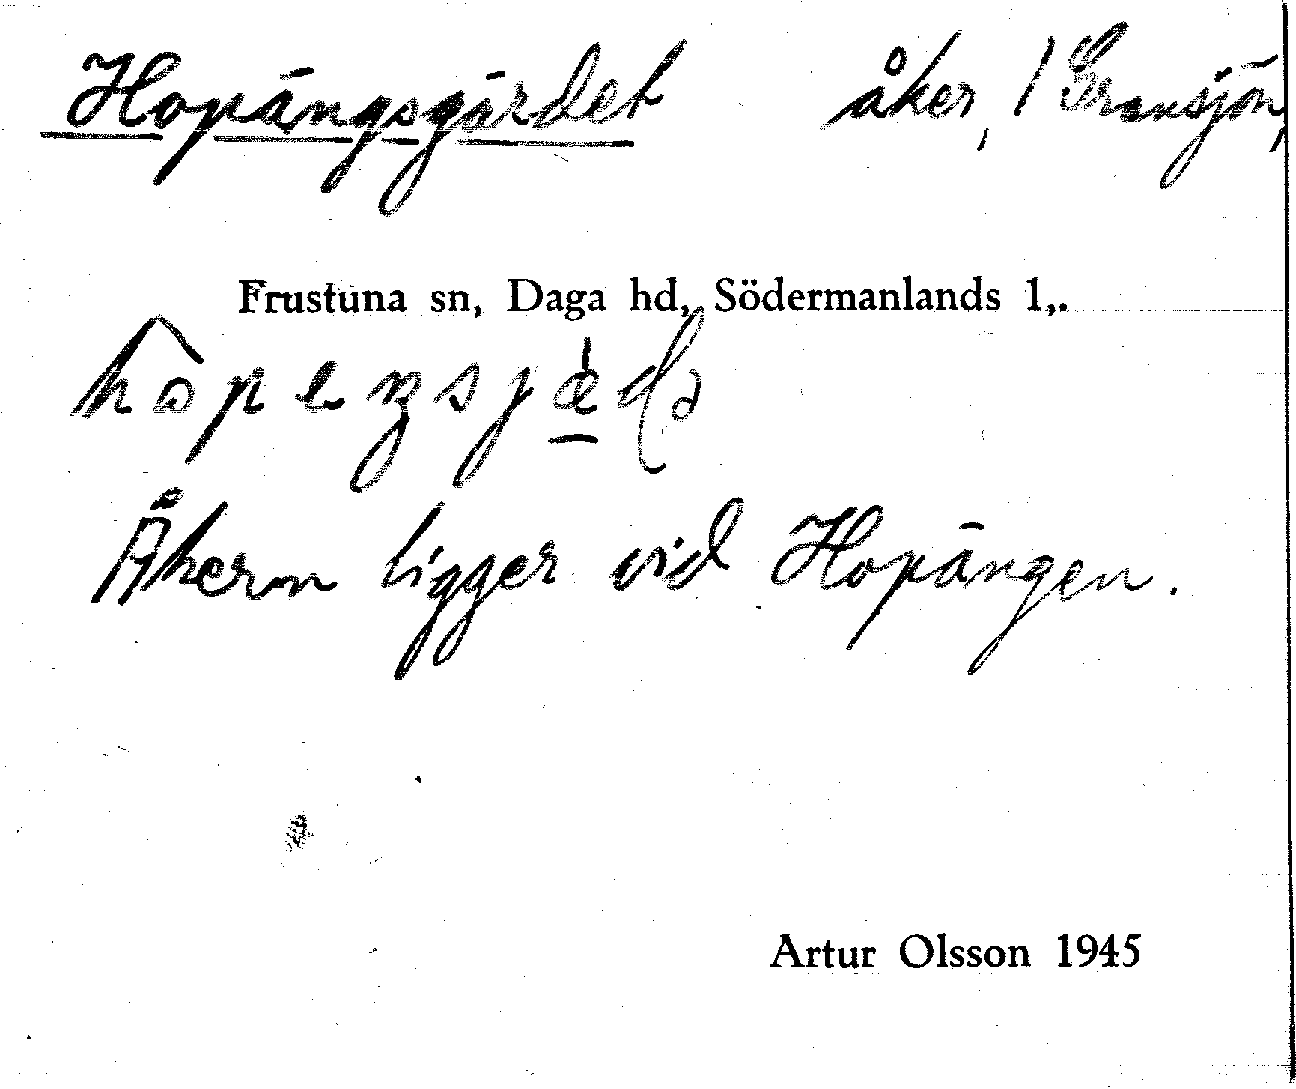 Hopängsgärdet åker, 1 Gransjön,
Frustuna sn, Daga hd, Södermanlands l,.
Åkern ligger vid Hopängen.
Artur Olsson 1945